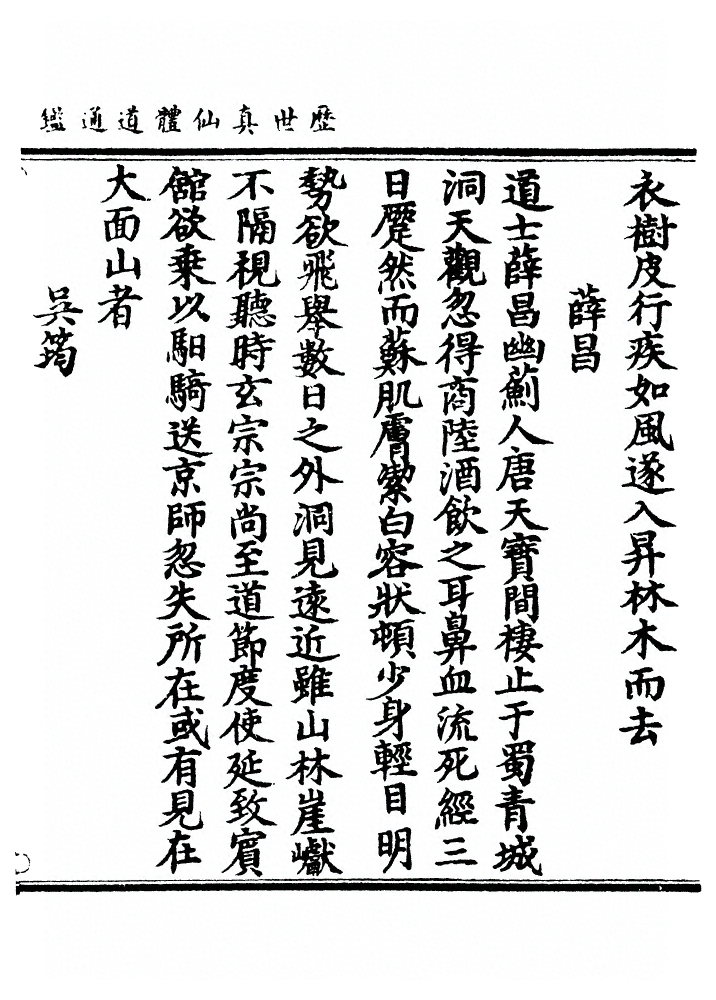 歷世真仙體道通鑑
衣樹皮行疾如風遂入昇林木而去
薛昌
道士薛昌幽薊人唐天寶間棲止于蜀青城
洞天觀忽得商陸酒飲之耳鼻血流死經三
日蹷然而蘇肌膚瑩白容狀頓少身輕目明
勢欲飛舉數日之外洞見遠近雖山林崖巘
不隔視聽時玄宗宗尚至道節度使延致賓
舘欲乗以馹騎送京師忽失所在或有見在
大面山者
吳筠